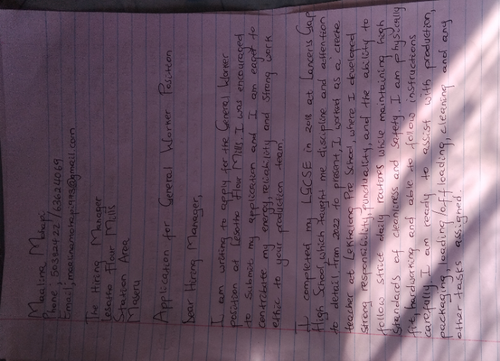 Mauling
Phone: 50352422/62024069
Email:
The Hiring Manager
Lesotho Flour Mills
Station Area
Maseru
Application for General Worker Position
Dear Hiring Manager,
I am writing to apply for the General Worker
position at Lesotho Flour Mills. I was encouraged
to submit my application and I am eager to
contribute my energy, reliability and strong work
ethic to your production team.
I completed my LGCSE in 2018 at Lancers Gap
High School which taught me discipline and attention
to detail. From 2022 to present I worked as a creche
teacher at Pre School, where I developed
strong responsibility, punctuality, and the ability to
follow strict daily routines while maintaining high
standards of cleanliness and safety. I am physically
fit, hardworking and able to follow instructions
carefully. I am ready to assist with production,
packaging, loading/off loading, cleaning and any
other tasks assigned.